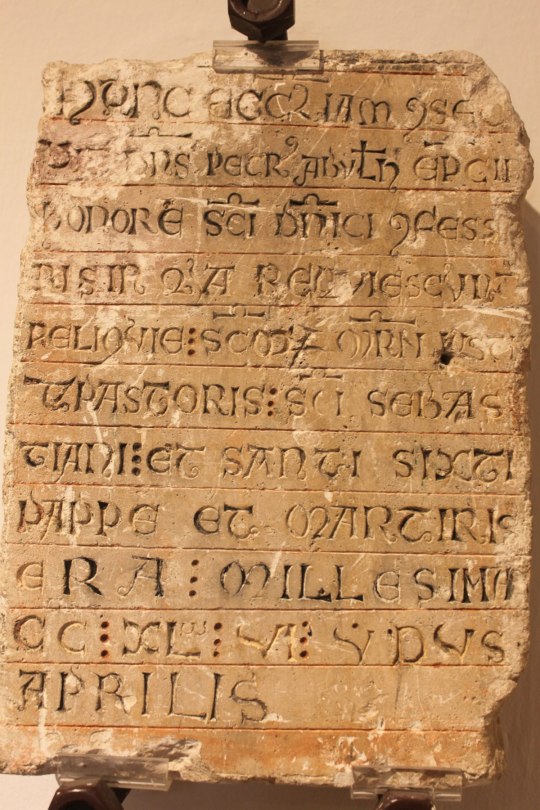 HVNC ECCLIAM ꝯSEC
DNS PETRꝰ EPC IN
HONORE SCI DNICI ꝯFESSO
RIS IN QA REQVIESCVNT
RELIQVIE ⁝ SCOꝜ MRN IVSTI
T PASTORIS ⁝ SCI SEBAS
TIANI ⁝ ET SANTI SIXTI
PAPPE ET MARTIRIS
ERA ⁝ MILLESIMA
CC ⁝ XL ⁝ VI ⁝ YDVS
APRILIS